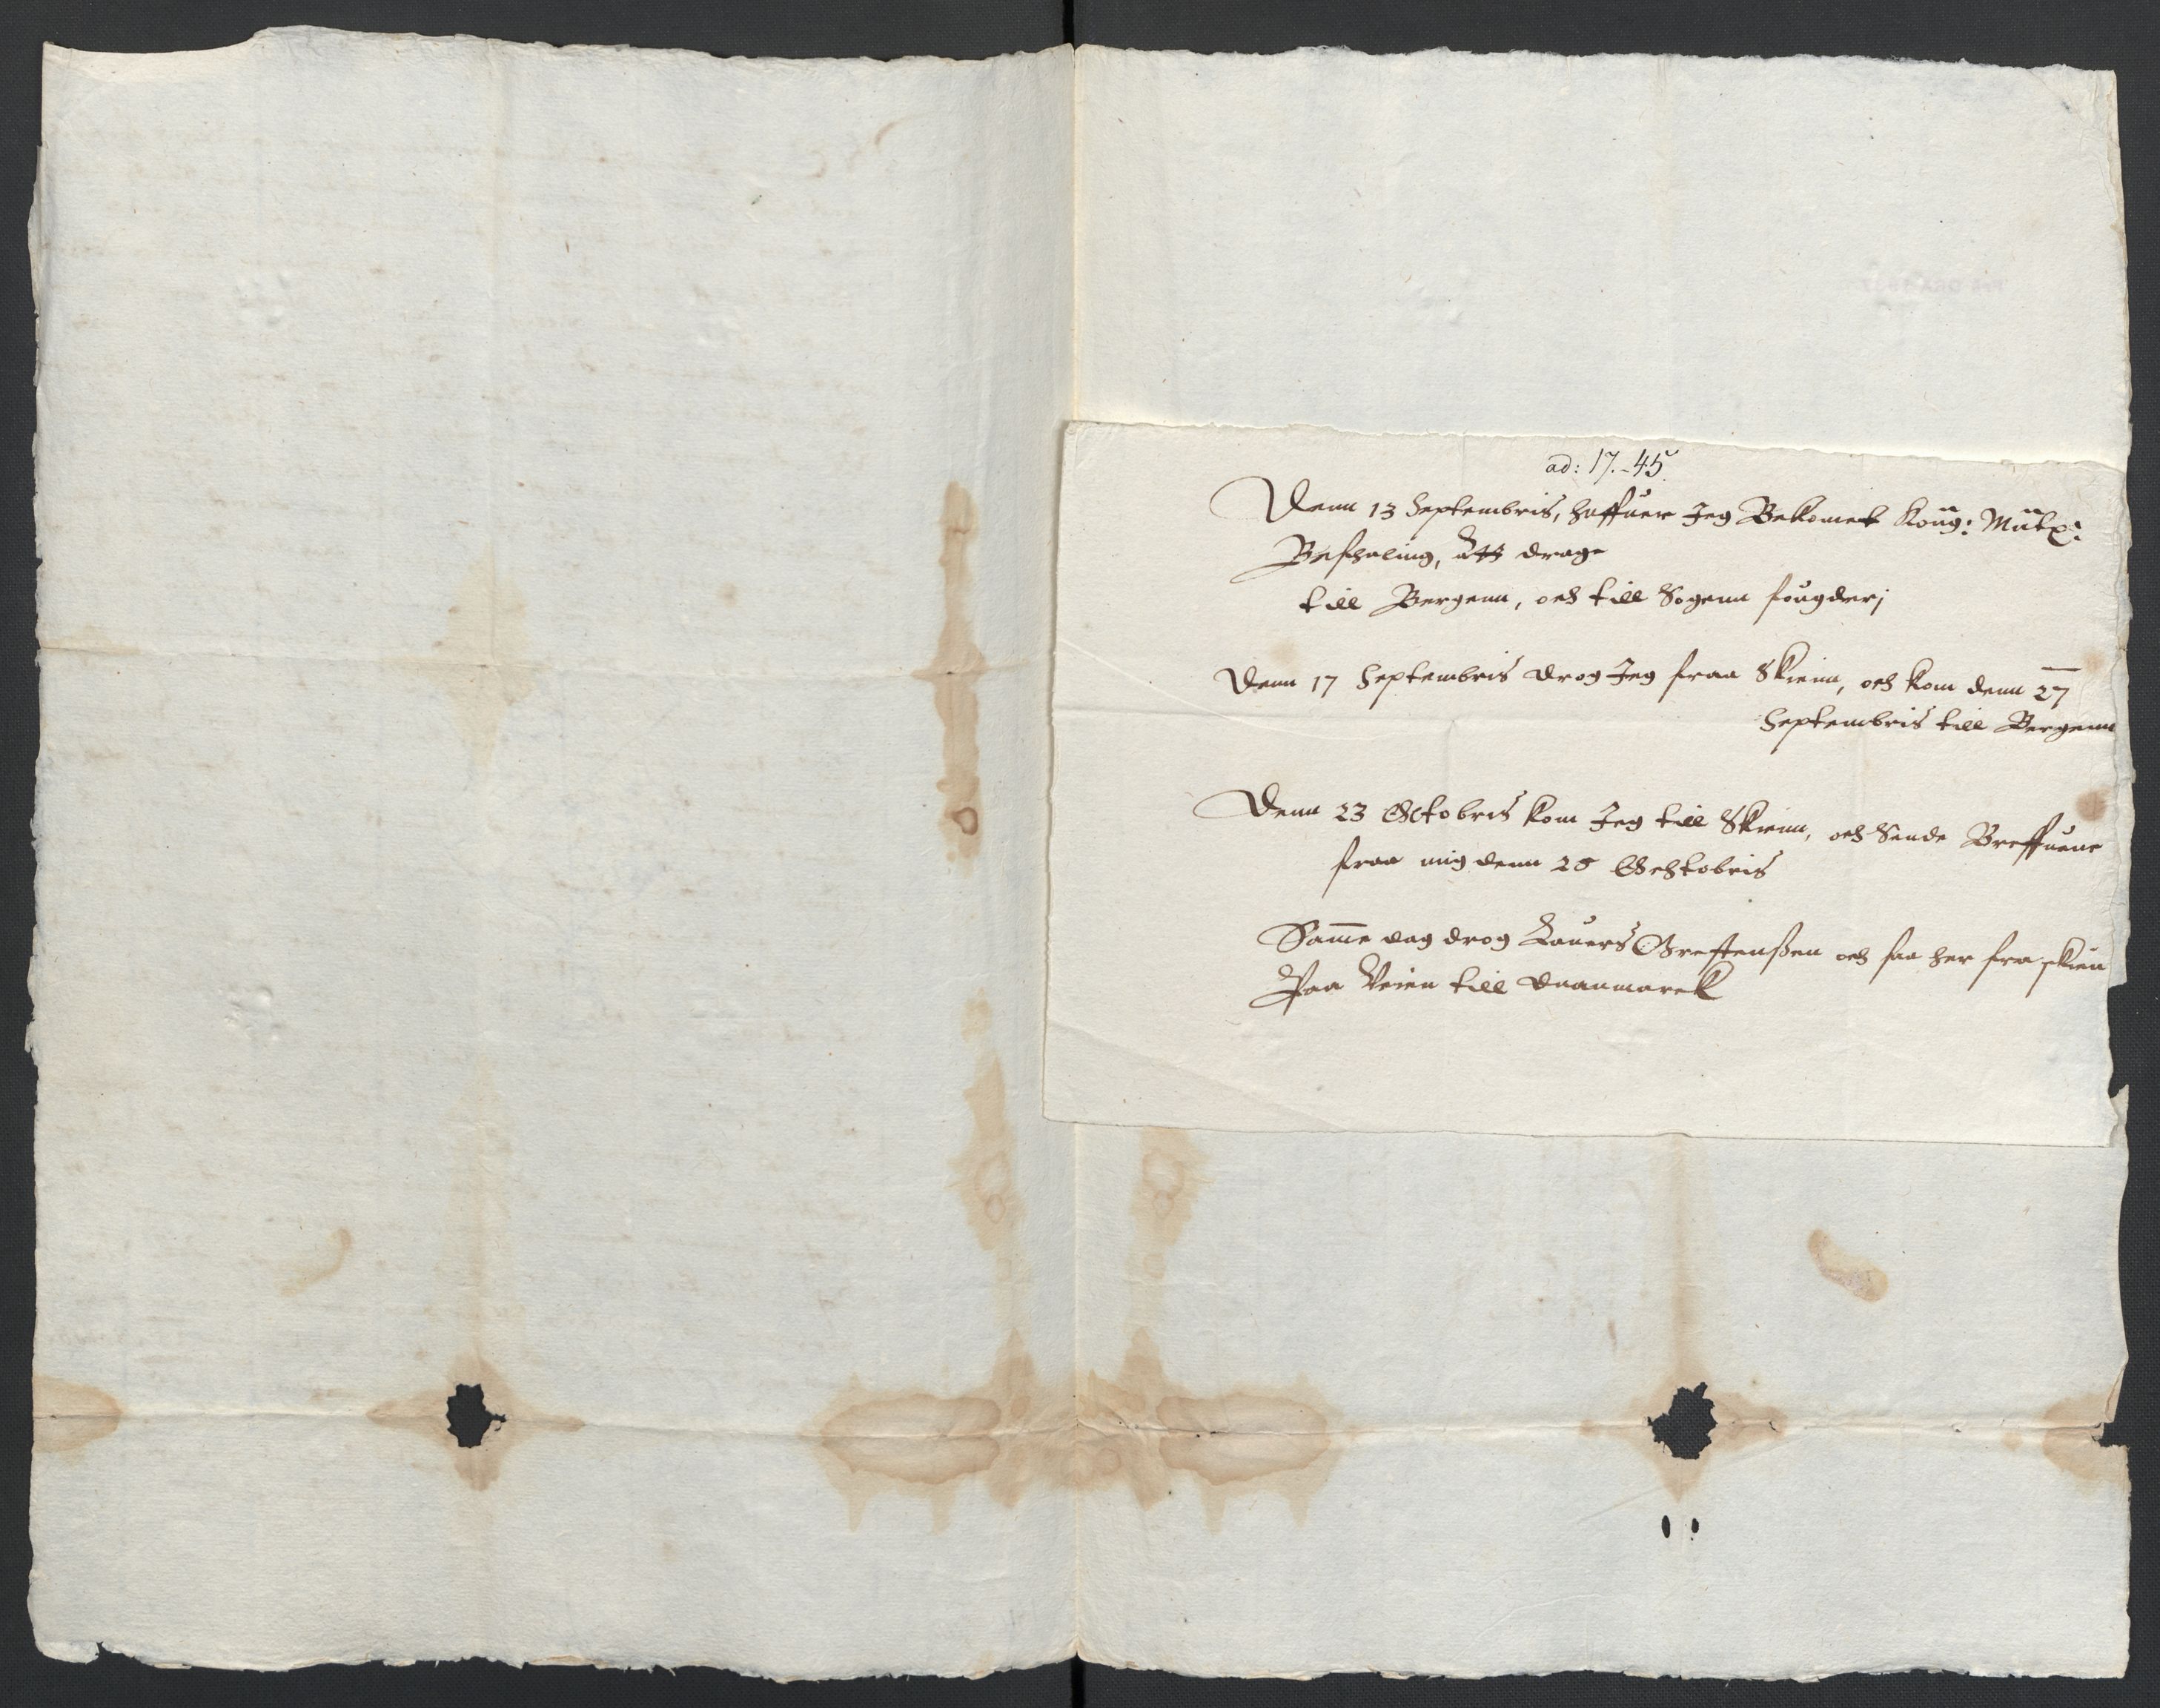 ad: 17.-45.
Denn 13 Septembris, haffuer Jeg Bekomet Kong: Matz:
Befhaling, att drage
till Bergenn, och till Sogenn fougderj
Denn 17 Septembris drog Jeg fraa Skienn, och kom denn 27
Septembris till Bergenn
Denn 23 Octobris kom Jeg till Skienn, och Sende Breffuene
fraa mig denn 28 Ochtobris
Samme dag drog Lauers och saa her fra skien
Paa Veien till Daanmarck